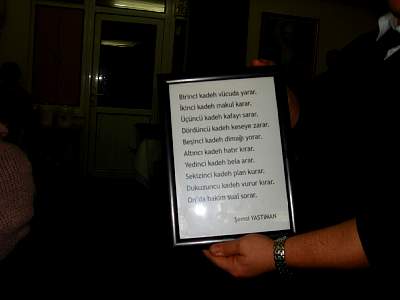 Birinci kadeh vücuda yarar,
İkinci kadeh makul karar,
Üçüncü kadeh kafayı sarar,
Dördüncü kadeh keseye zarar,
Beşinci kadeh dimağı yorar,
Altıncı kadeh hatır kırar,
Yedinci kadeh bela arar,
Sekizinci kadeh plan kurar,
Dokuzuncu kadeh vurur kırar,
On'da hakim sual sorar.
Şemsi YASTIMAN